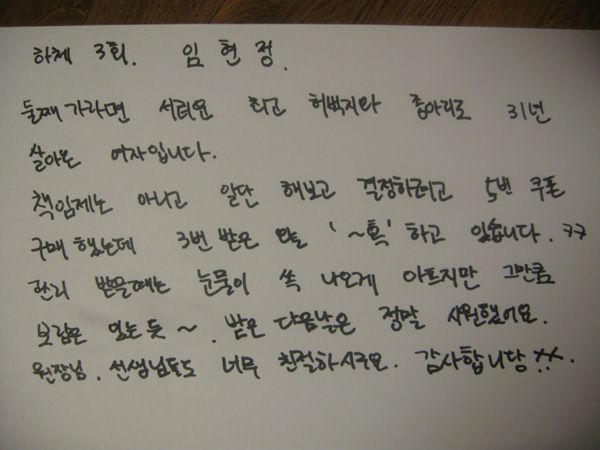 하체 3회. 임현정.
둘째가라면 서러운 최고 허벅지와 종아리로 31년
살아온 여자입니다.
책임제는 아니고 일단 해보고 결정하려고 5번 쿠폰
구매했는데 3번 받은 오늘 '~흑' 하고 있습니다. ㅋㅋ
관리 받을때는 눈물이 쏙 나오게 아프지만 그만큼
보람은 있는 듯~. 받은 다음날은 정말 시원했어요.
원장님. 선생님들도 너무 친절하시구요. 감사합니당 ^^.